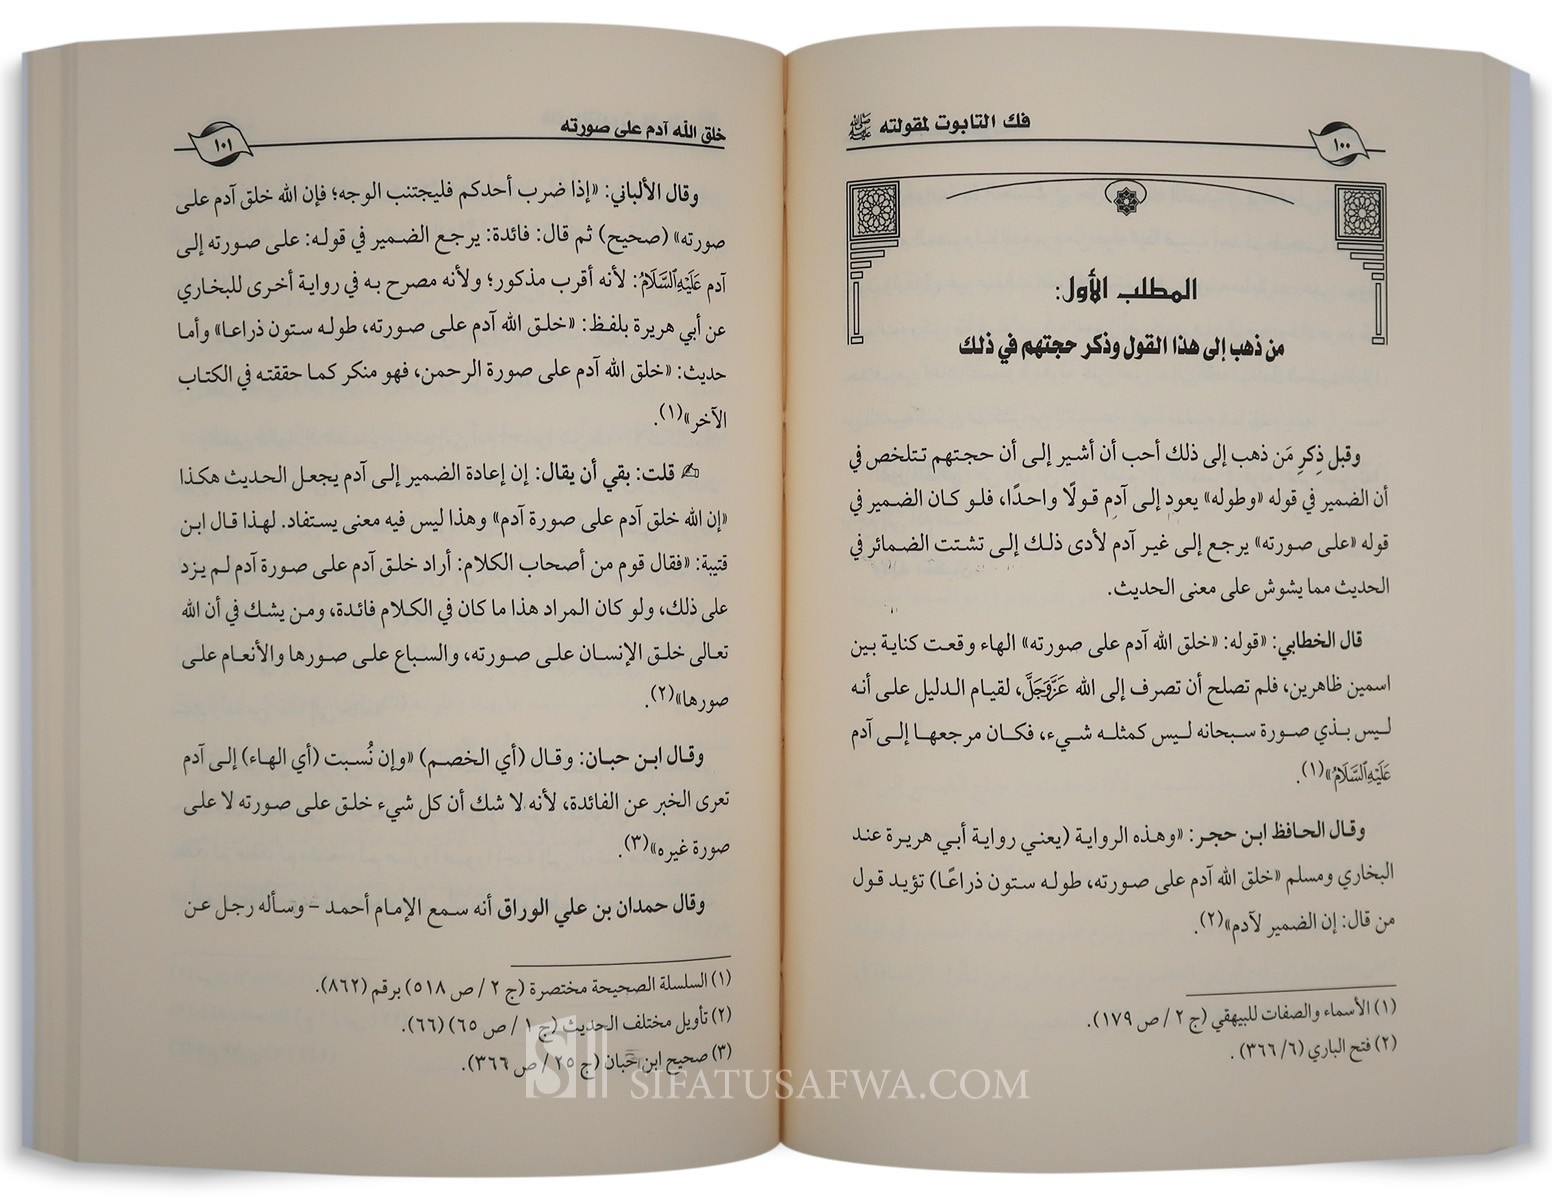 ١٠٠
فك التابوت لمقولته ﷺ
المطلب الأول:
من ذهب إلى هذا القول وذكر حجتهم في ذلك
وقبل ذِكرِ مَن ذهب إلى ذلك أحب أن أشير إلى أن حجتهم تتلخص في
أن الضمير في قوله «وطوله» يعود إلى آدم قولًا واحدًا، فلو كان الضمير في
قوله «على صورته» يرجع إلى غير آدم لأدى ذلك إلى تشتت الضمائر في
الحديث مما يشوش على معنى الحديث.
قال الخطابي: «قوله: «خلق الله آدم على صورته» الهاء وقعت كناية بين
اسمين ظاهرين، فلم تصلح أن تصرف إلى الله عَزَّوَجَلَّ، لقيام الدليل على أنه
ليس بذي صورة سبحانه ليس كمثله شيء، فكان مرجعها إلى آدم
عَلَيْهِ ٱلسَّلَامُ»(١).
وقال الحافظ ابن حجر: «وهذه الرواية (يعني رواية أبي هريرة عند
البخاري ومسلم «خلق الله آدم على صورته، طوله ستون ذراعًا) تؤيد قول
من قال: إن الضمير لآدم»(٢).
(١) الأسماء والصفات للبيهقي (ج ٢ / ص ١٧٩).
(٢) فتح الباري (٦/ ٣٦٦) .
خلق الله آدم على صورته
١٠١
وقال الألباني: «إذا ضرب أحدكم فليجتنب الوجه؛ فإن الله خلق آدم على
صورته» (صحيح) ثم قال: فائدة: يرجع الضمير في قوله: على صورته إلى
آدم عَلَيْهِ ٱلسَّلَامُ: لأنه أقرب مذكور؛ ولأنه مصرح به في رواية أخرى للبخاري
عن أبي هريرة بلفظ: «خلق الله آدم على صورته، طوله ستون ذراعا» وأما
حديث: «خلق الله آدم على صورة الرحمن، فهو منكر كما حققته في الكتاب
الآخر»(١).
✍ قلت: بقي أن يقال: إن إعادة الضمير إلى آدم يجعل الحديث هكذا
«إن الله خلق آدم على صورة آدم» وهذا ليس فيه معنى يستفاد. لهذا قال ابن
قتيبة: «فقال قوم من أصحاب الكلام: أراد خلق آدم على صورة آدم لم يزد
على ذلك، ولو كان المراد هذا ما كان في الكلام فائدة، ومن يشك في أن الله
تعالى خلق الإنسان على صورته، والسباع على صورها والأنعام على
صورها»(٢).
وقال ابن حبان: وقال (أي الخصم) «وإن نُسبت (أي الهاء) إلى آدم
تعرى الخبر عن الفائدة، لأنه لا شك أن كل شيء خلق على صورته لا على
صورة غيره»(٣).
وقال حمدان بن علي الوراق أنه سمع الإمام أحمد - وسأله رجل عن
(١) السلسلة الصحيحة مختصرة (ج ٢ / ص ٥١٨) برقم (٨٦٢).
(٢) تأويل مختلف الحديث (ج ١ / ص ٦٥) (٦٦).
(٣) صحيح ابن حبان (ج ٢٥ / ص ٣٦٦).
SIFATUSAFWA.COM